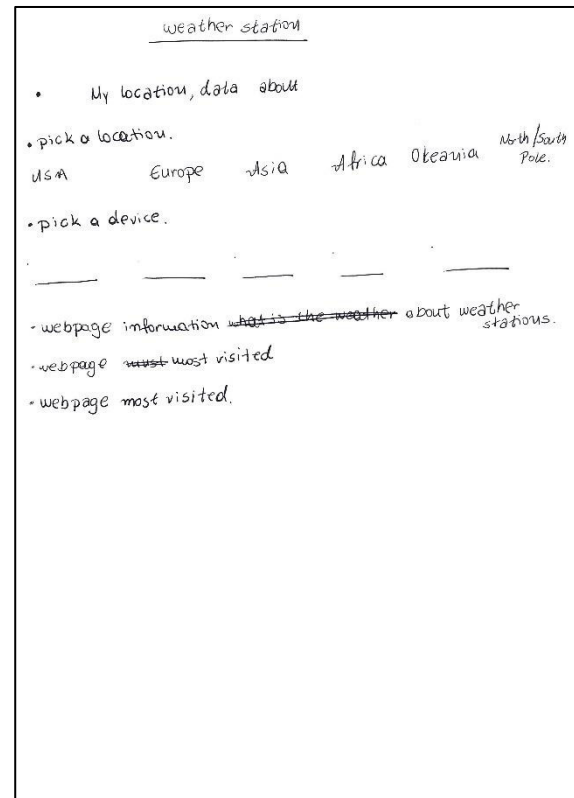 weather station
• My location, data about
• pick a location.
USA Europe Asia Africa Okeania North/South Pole.
• pick a device.
- webpage information what is the weather about weather stations.
- webpage must most visited
- webpage most visited.